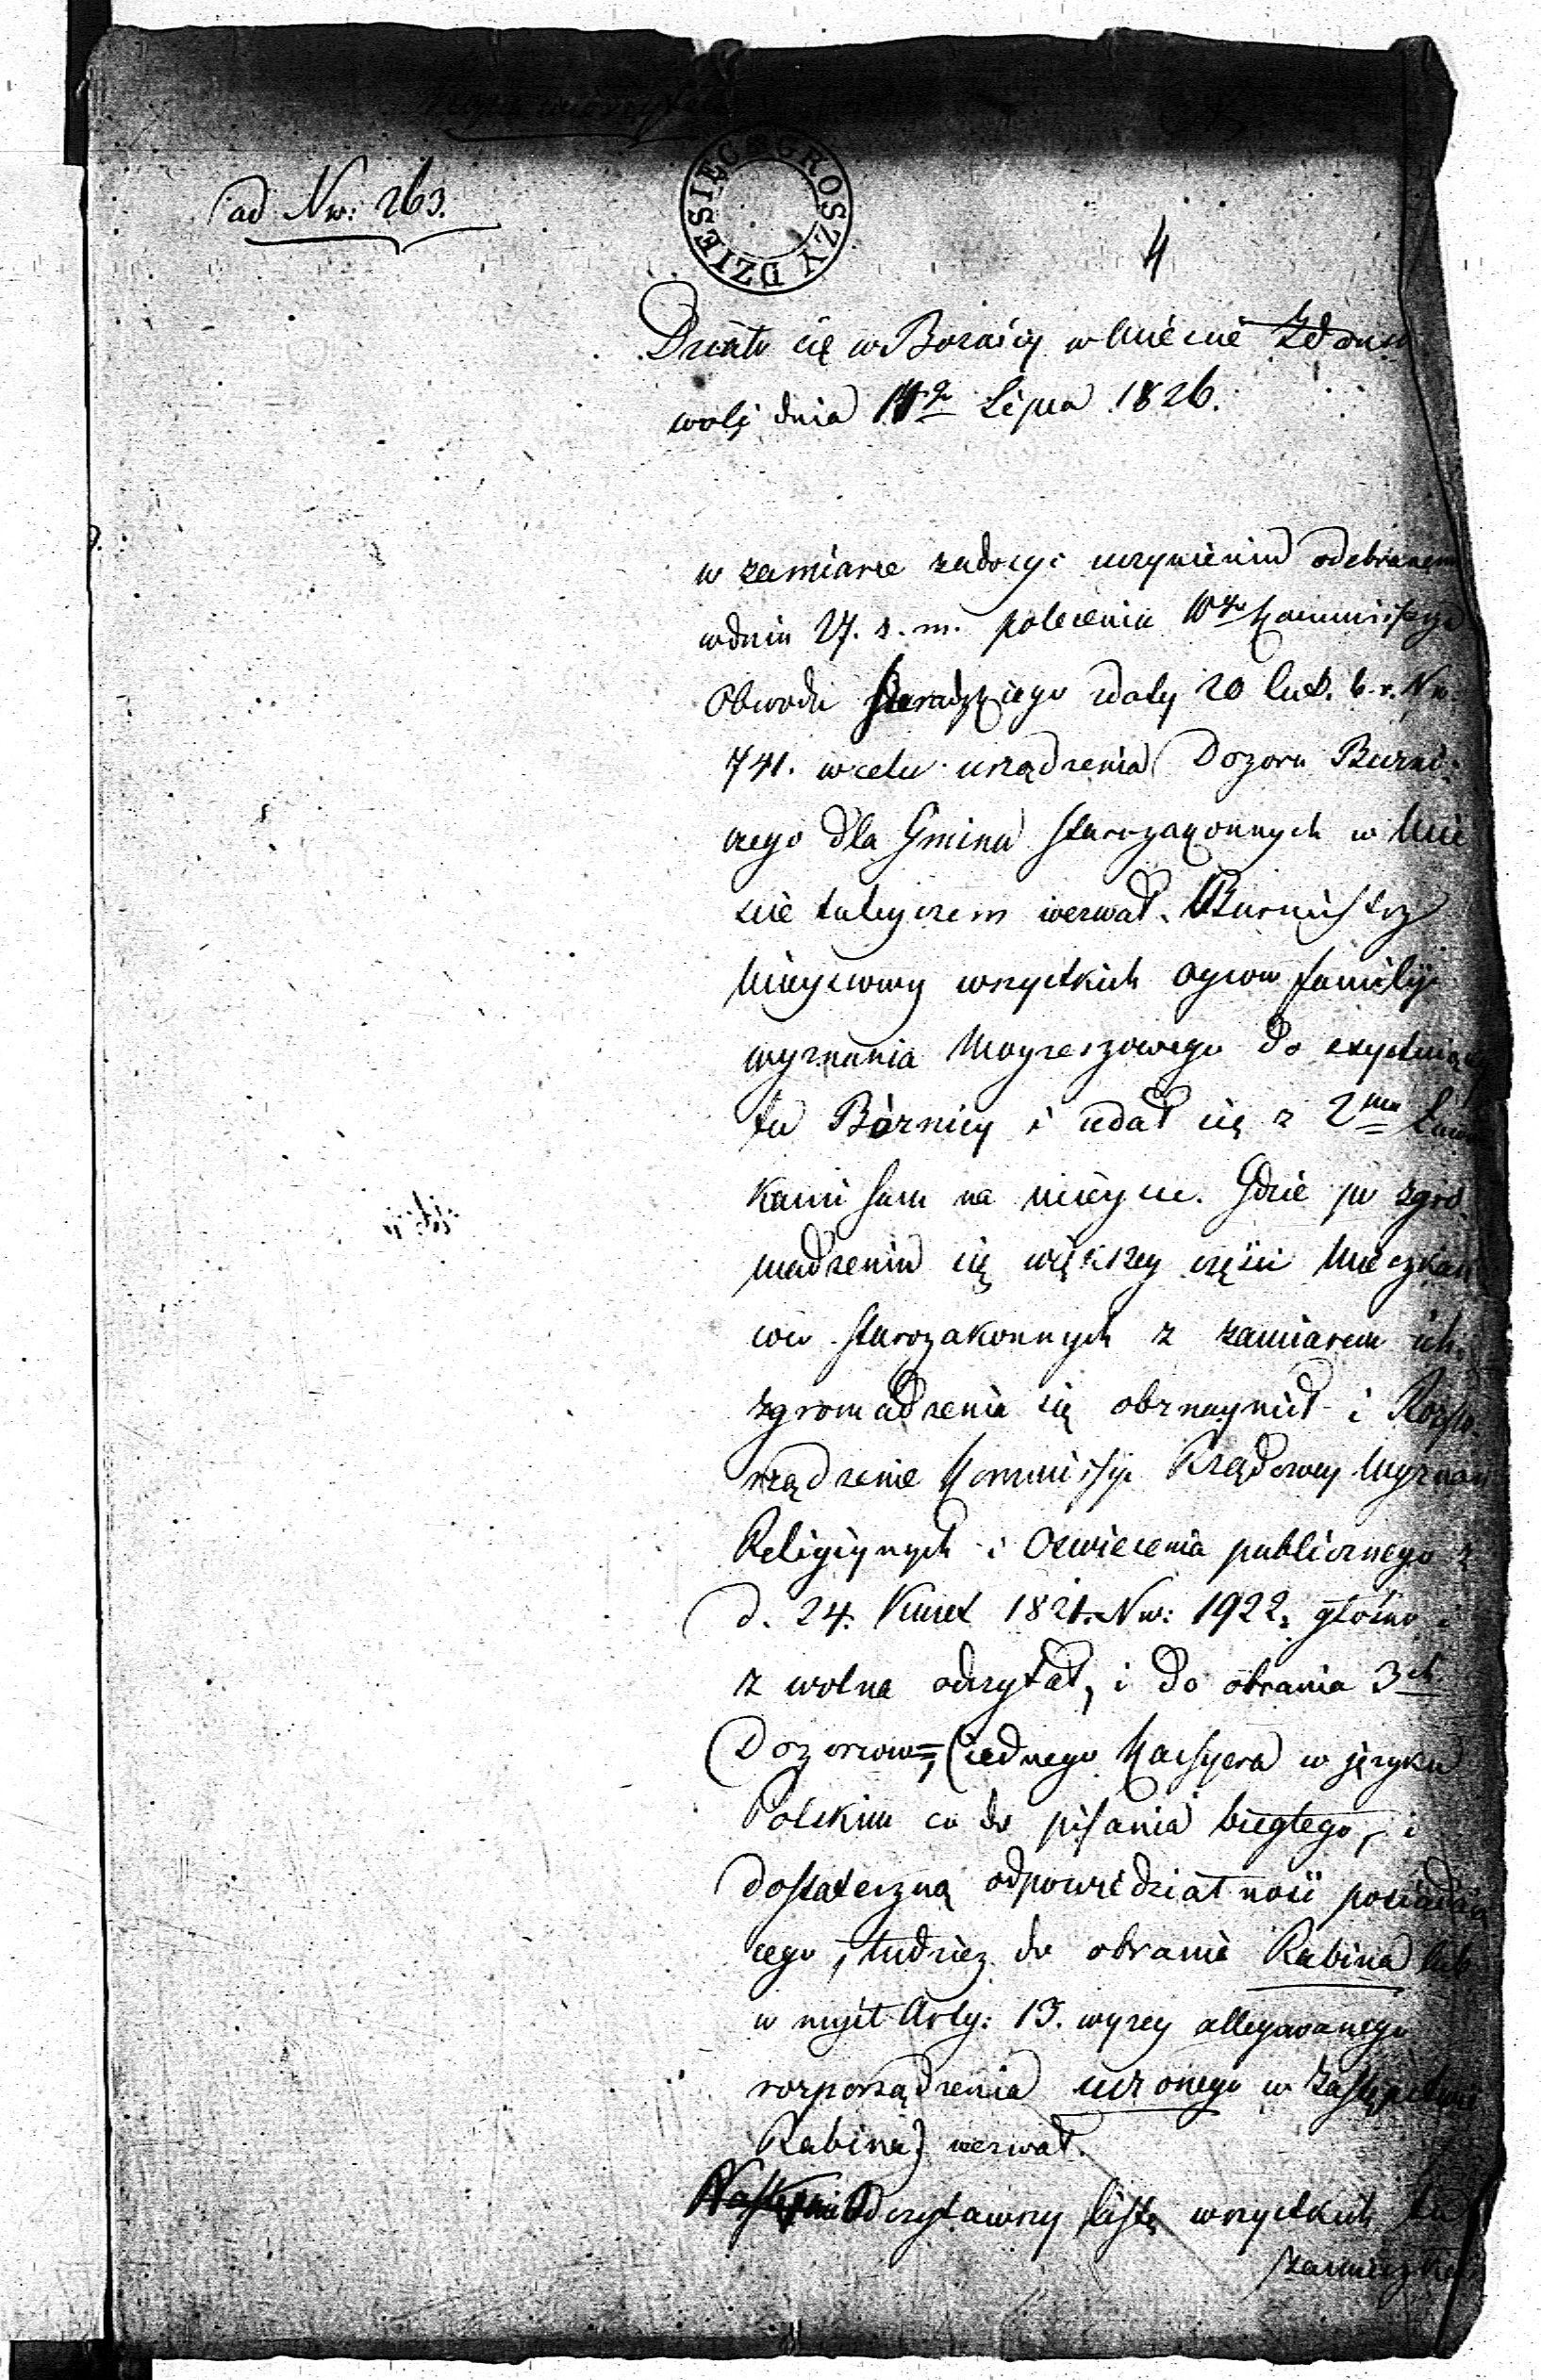 ad Nro: 263.
DZIESIĘC GROSZY
4
Działo się w Bożnicy w Mieście Zdons
woli dnia Lipca 1826.
w zamiarze zadosyć uczynieniu odebranemu
w dniu 27. z. m. poleceniu Wgo Kommissyą
Obwodu Sieradzkiego z daty 20 lut. b. r. Nro.
741. w celu urządzenia Dozoru Bużni-
czego dla Gminu starozakonnych w Mie
scie tuteyszem wezwał Burmistrz
Mieyscowy wszystkich oycow familÿ
wyznania Moyżeszowego do exystuiącey
tu Bóżnicy i udał się z 2ma Ławni
kami sam na mieysce. Gdzie po zgro-
madzeniu się większey części Mieszkań
cow starozakonnych z zamiarem ich
zgromadzenia się obznaymił i Rozpo-
rządzenie Kommissyi Rządowey Wyznań
Religiynych i Oświecenia publicznego z
d. 24. 1821. Nro: 1922. głośno i
z wolna odczytał, i do obrania 3ch
Dozorcow, (iednego Kassyera w języku
Polskim co do pisania biegłego, i
dostateczną odpowiedzialność posiadaią
cego, tudziez do obrania Rabina lub
w myśl Arty: 13. wyżey allegowanego
rozporządzenia uczonego w zastępstwie
Rabina) wezwał.
Odczytawszy listę wszystkich tu
zamieszka